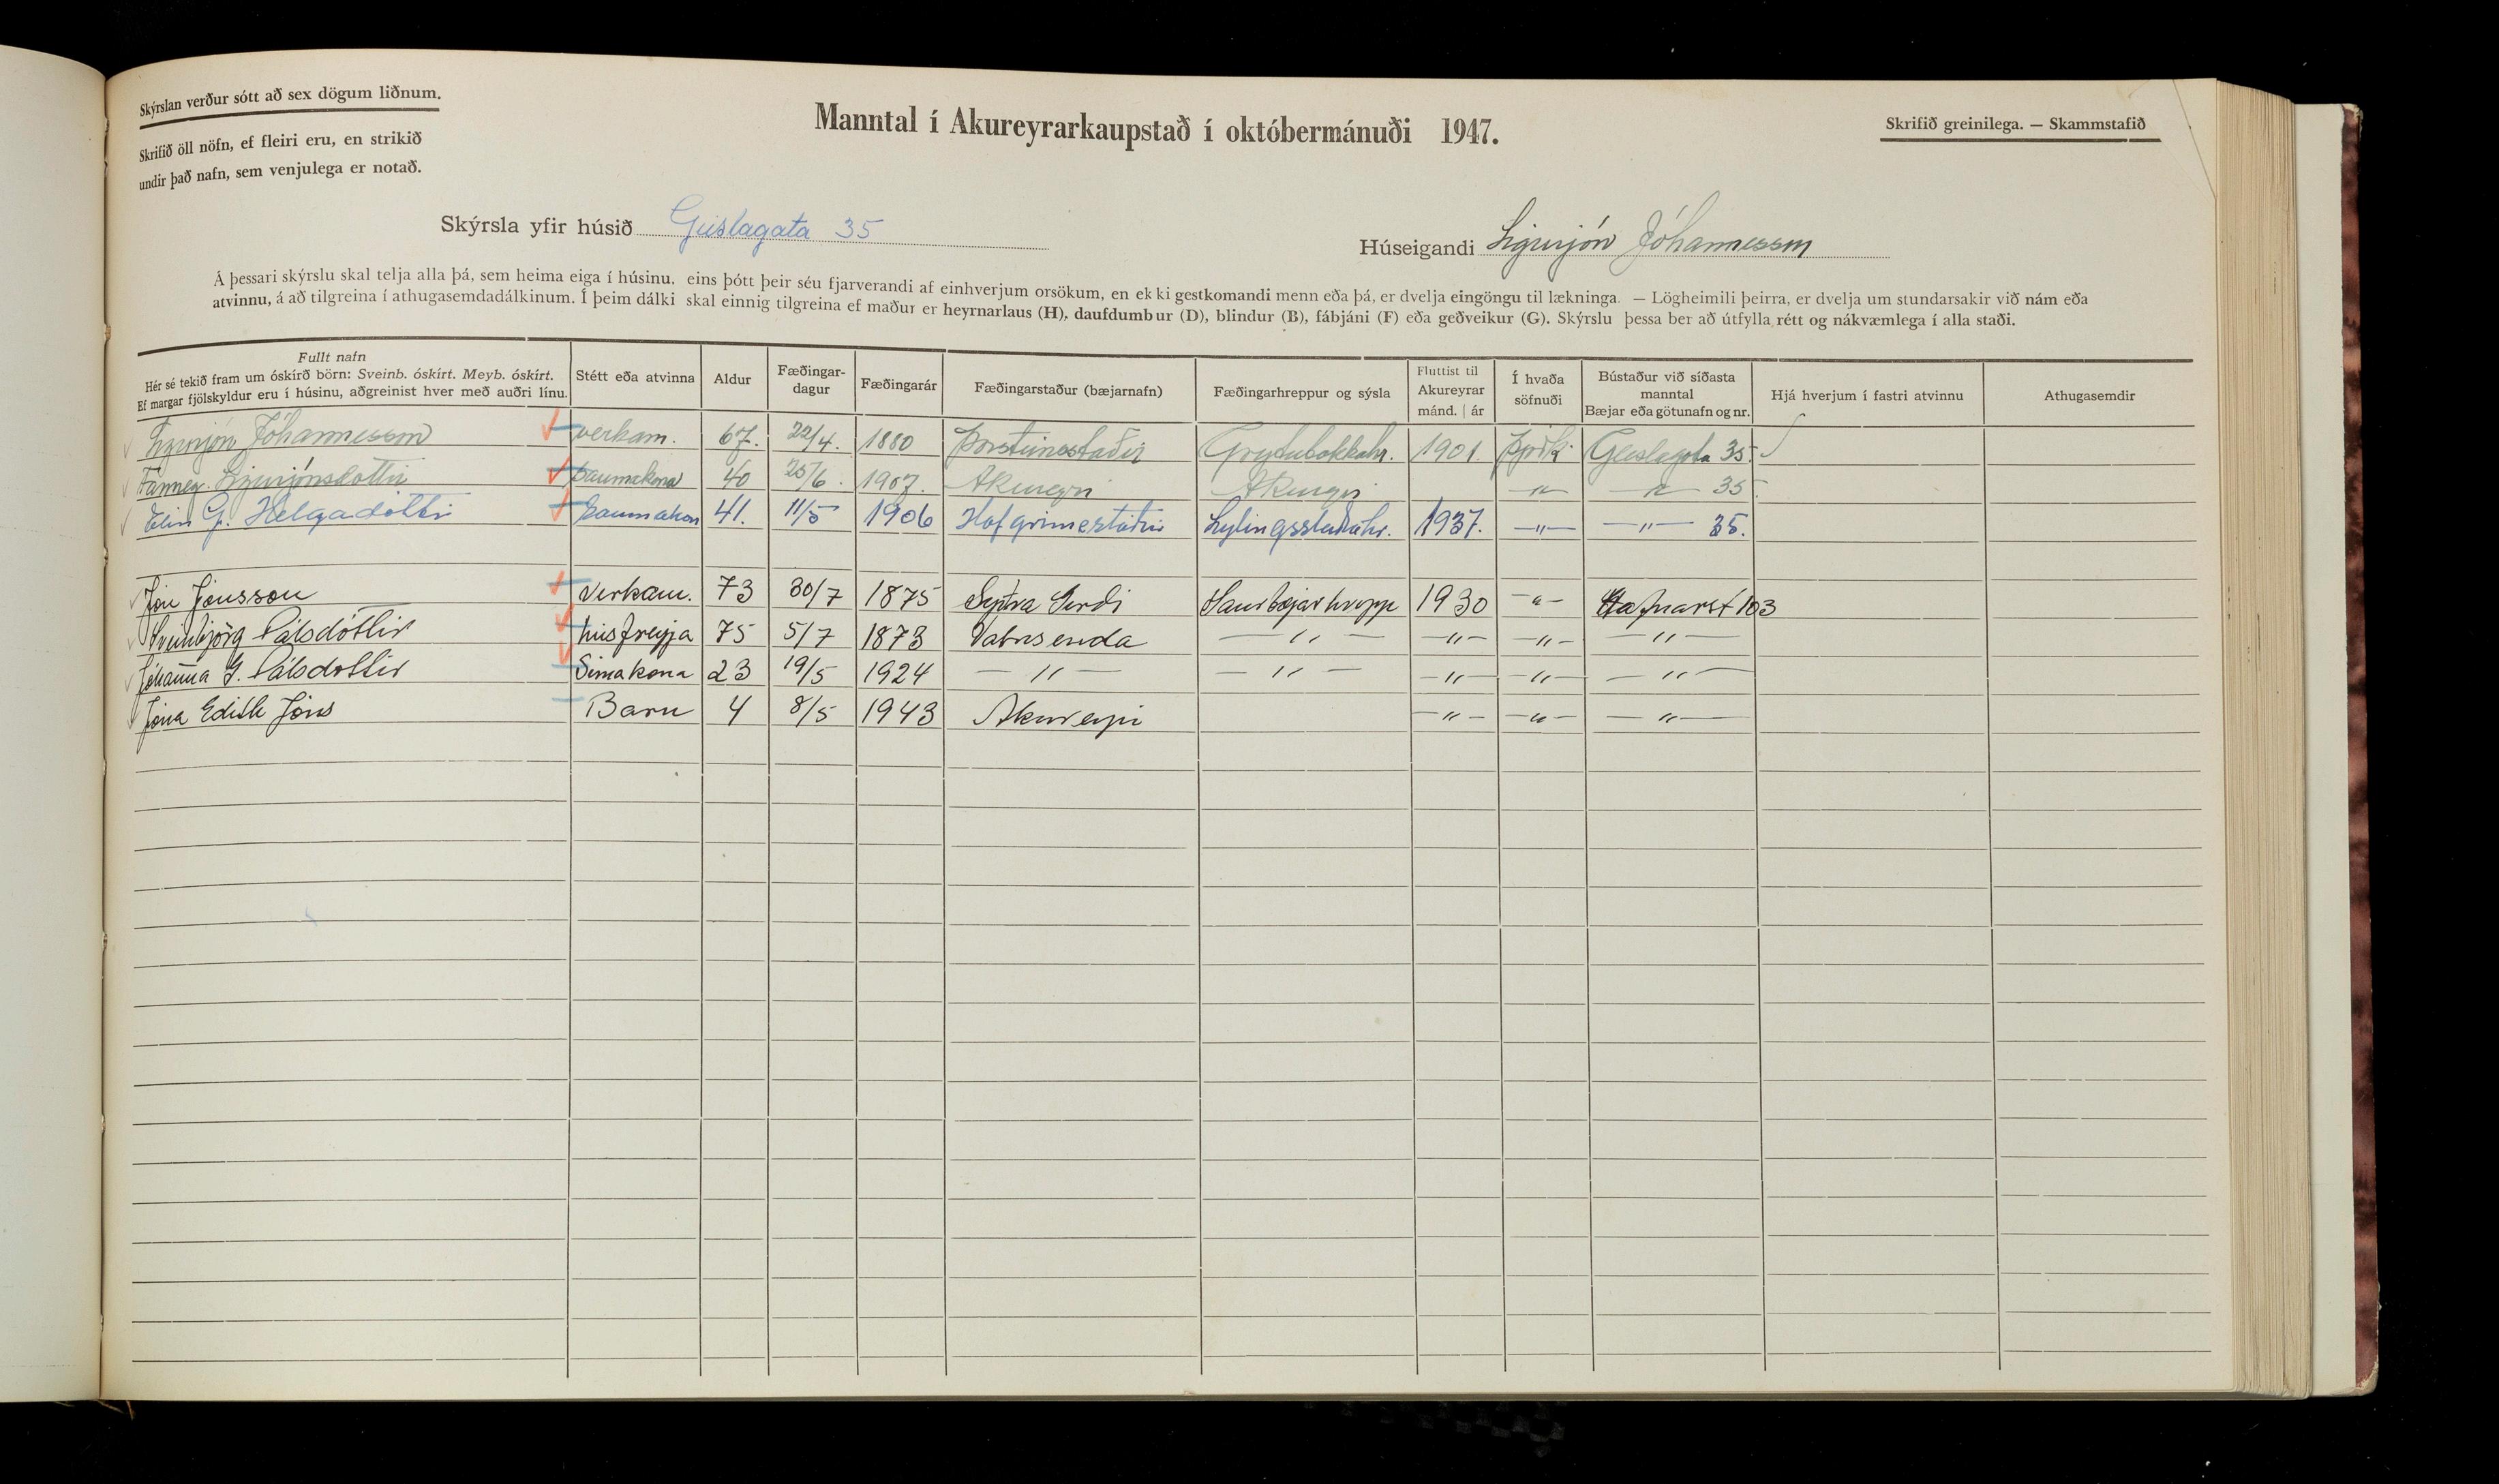 Skýrslan verður sótt að sex dögum liðnum.
Skrifið öll nöfn, ef fleiri eru, en strikið
undir það nafn, sem venjulega er notað.
Manntal í Akureyrarkaupstað í októbermánuði 1947.
Skrifið greinilega. — Skammstafið
Skýrsla yfir húsið Geislagata 35
Húseigandi Sigurjón Jóhannesson
Á þessari skýrslu skal telja alla þá, sem heima eiga í húsinu, eins þótt þeir séu fjarverandi af einhverjum orsökum, en ekki gestkomandi menn eða þá, er dvelja eingöngu til lækninga. — Lögheimili þeirra, er dvelja um stundarsakir við nám eða
atvinnu, á að tilgreina í athugasemdadálkinum. Í þeim dálki skal einnig tilgreina ef maður er heyrnarlaus (H), daufdumbur (D), blindur (B), fábjáni (F) eða geðveikur (G). Skýrslu þessa ber að útfylla rétt og nákvæmlega í alla staði.
Fullt nafn
Hér sé tekið fram um óskírð börn: Sveinb. óskírt. Meyb. óskírt.
Ef margar fjölskyldur eru í húsinu, aðgreinist hver með auðri línu.
Stétt eða atvinna
Aldur
Fæðingar-
dagur
Fæðingarár
Fæðingarstaður (bæjarnafn)
Fæðingarhreppur og sýsla
Fluttist til
Akureyrar
mánd. | ár
Í hvaða
söfnuði
Bústaður við síðasta
manntal
Bæjar eða götunafn og nr.
Hjá hverjum í fastri atvinnu
Athugasemdir
Sigurjón Jóhannesson verkam. 67. 22/4. 1880 Þorsteinsstaðir Grýtubakkahr. 1901. Þjóðk. Geislagata 35.
Fanney Sigurjónsdóttir saumakona 40 25/6. 1907. Akureyri Akureyri —"— —"— 35.
Elín G. Helgadóttir Saumakon 41. 11/5 1906 Hafgrimsstaðir Lýtingsstaðahr. 1937. —"— —"— 35.
Jón Jónsson Verkam. 73 30/7 1875 Syðra Gerdi Saurbæjarhrepp 1930 —"— Hafnarst 103
Sveinbjörg Pálsdóttir húsfreyja 75 5/7 1873 Vatnsenda —"— —"— —"— —"—
Jóhanna G. Pálsdottir Símakona 23 19/5 1924 —"— —"— —"— —"— —"—
Jóna Edith Jóns Barn 4 8/5 1943 Akureyri —"— —"— —"—